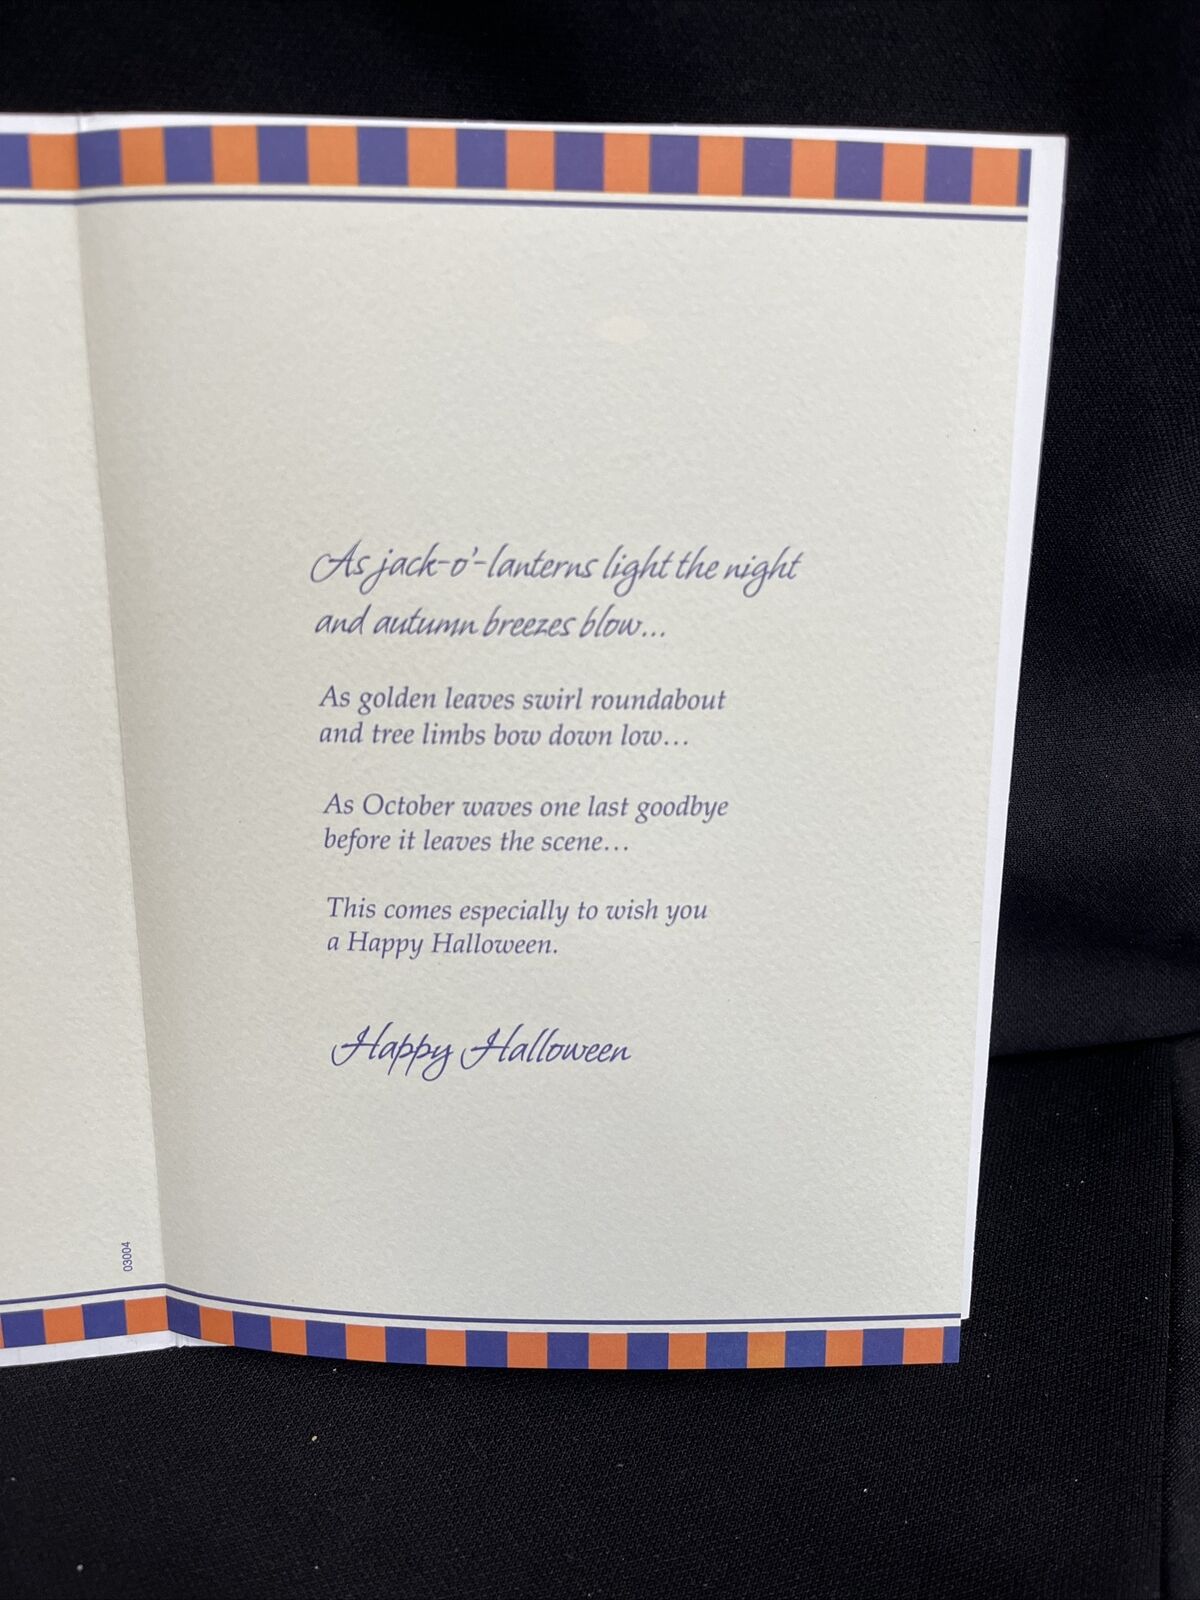 As jack-o'-lanterns light the night
and autumn breezes blow...
As golden leaves swirl roundabout
and tree limbs bow down low...
As October waves one last goodbye
before it leaves the scene...
This comes especially to wish you
a Happy Halloween.
Happy Halloween
03004